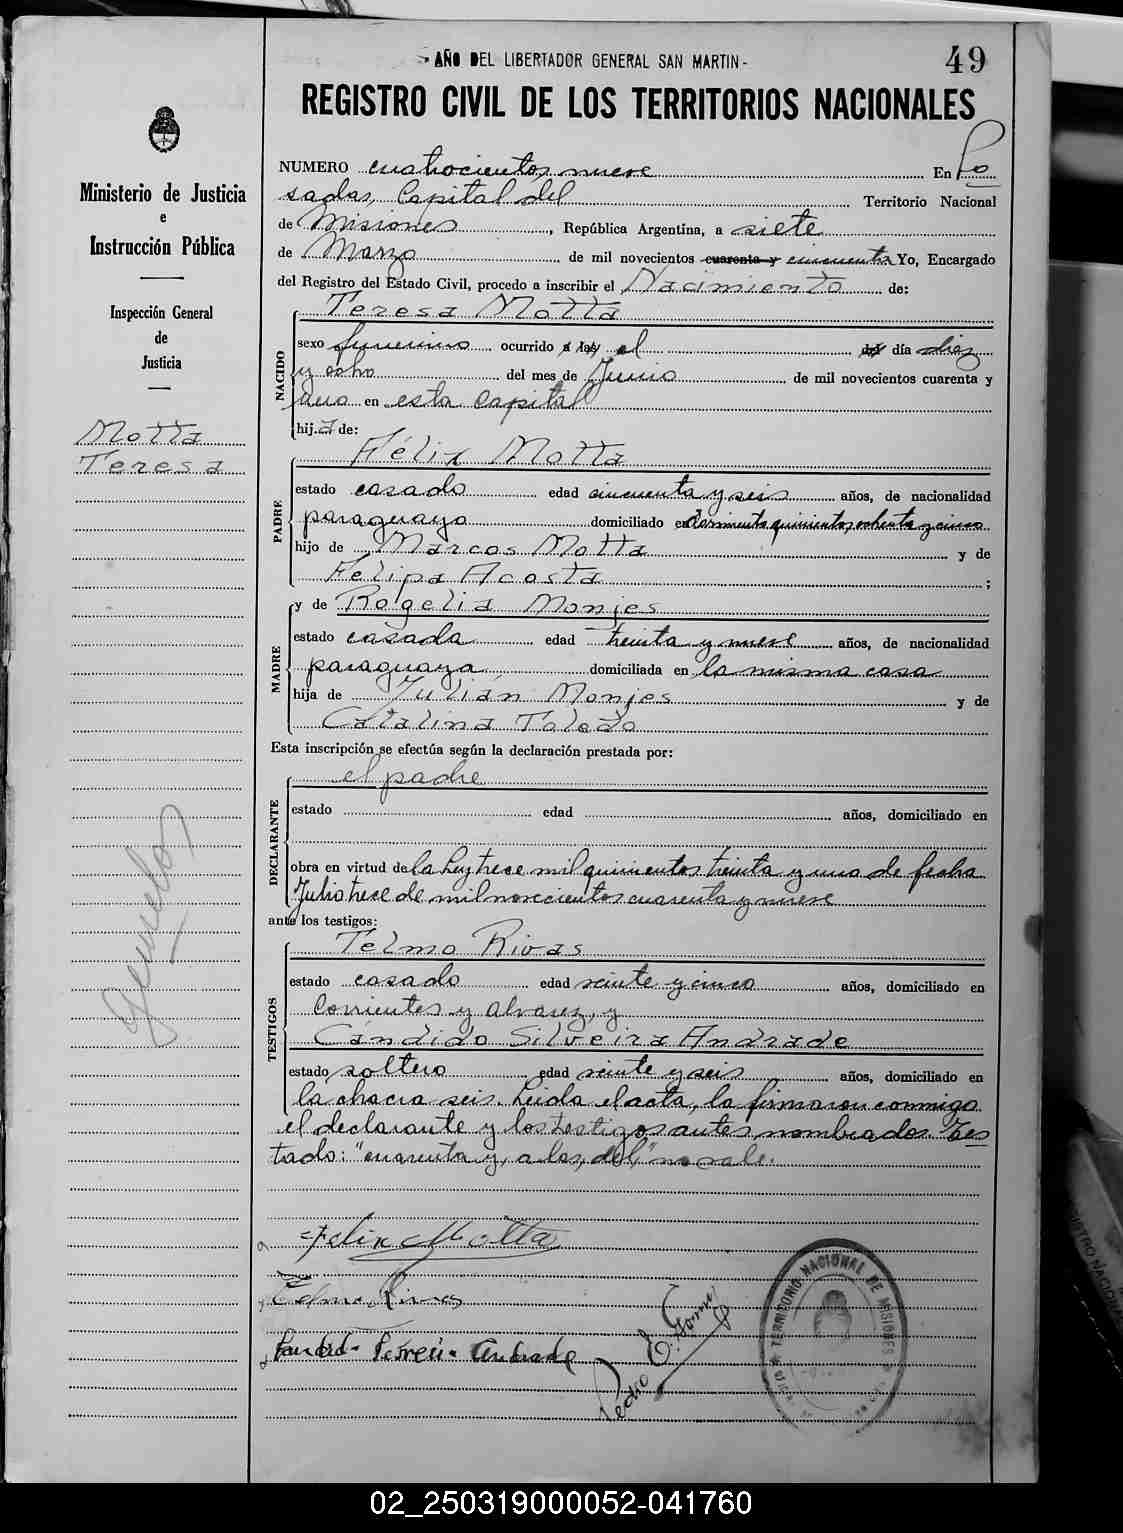 - AÑO DEL LIBERTADOR GENERAL SAN MARTIN -
49
REGISTRO CIVIL DE LOS TERRITORIOS NACIONALES
Ministerio de Justicia
e
Instrucción Pública
Inspección General
de
Justicia
Motta
Teresa
gemelos
NUMERO cuatrocientos nueve En Po
sadas, Capital del Territorio Nacional
de Misiones, República Argentina, a siete
de Marzo de mil novecientos cuarenta y cincuenta Yo, Encargado
del Registro del Estado Civil, procedo a inscribir el Nacimiento de:
Teresa Motta
NACIDO
sexo femenino ocurrido a las el del día diez
y ocho del mes de Junio de mil novecientos cuarenta y
uno en esta Capital
hija de:
Félix Motta
PADRE
estado casado edad cincuenta y seis años, de nacionalidad
paraguaya domiciliado en Sarmiento quinientos ochenta y cinco
hijo de Marcos Motta y de
Felipa Acosta ;
y de Rogelia Monjes
MADRE
estado casada edad treinta y nueve años, de nacionalidad
paraguaya domiciliada en la misma casa
hija de Julián Monjes y de
Catalina Toledo
Esta inscripción se efectúa según la declaración prestada por:
el padre
DECLARANTE
estado edad años, domiciliado en
obra en virtud de la Ley trece mil quinientos treinta y uno de fecha
Julio trece de mil novecientos cuarenta y nueve
ante los testigos:
Telmo Rivas
TESTIGOS
estado casado edad veinte y cinco años, domiciliado en
Corrientes y Alvarez, y
Cándido Silveira Andrade
estado soltero edad veinte y seis años, domiciliado en
la chacra seis. Leida el acta, la firmaron conmigo
el declarante y los testigos antes nombrados. Tes
tado: "cuarenta y, a las, del," no vale.
Felix Motta
Telmo Rivas
Andrade
Pedro E. Gomez
TERRITORIO NACIONAL DE MISIONES
02_250319000052-041760